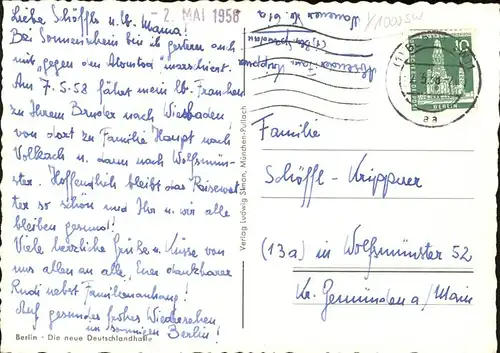 - 2. MAI 1958
Liebe Schöffls u. lb. Mama!
Bei Sonnenschein bin ich gestern auch
mit "gegen den Atomtod" marschiert.
Am 7.5.58 fährt mein lb. Frauchen
zu Ihrem Bruder nach Wiesbaden,
von dort zu Familie Haupt nach
Volkach u. dann nach Wolfsmün-
ster. Hoffentlich bleibt das Reisewet-
ter so schön und Ihr u. wir alle
bleiben gesund!
Viele herzliche Grüße u. Küsse von
uns allen an alle, Euer dankbarer
Rudi nebst Familienanhang!
Auf gesundes frohes Wiedersehen
im sonnigen Berlin!
Berlin - Die neue Deutschlandhalle
Verlag Ludwig Simon, München-Pullach
Absender: Fam. Krippner
61a
10
BERLIN
Familie
Schöffl-Krippner
(13a) in Wolfsmünster 52
Kr. Gemünden a/Main